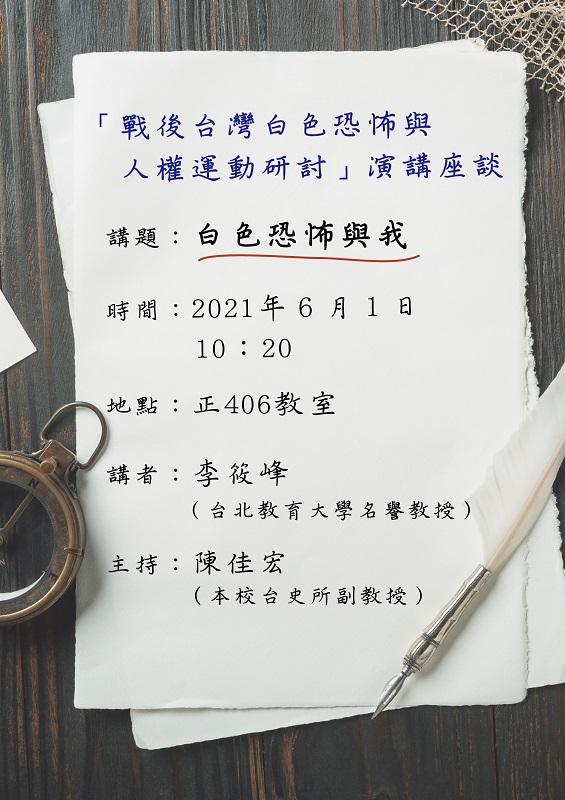 「戰後台灣白色恐怖與
人權運動研討」演講座談
講題：白色恐怖與我
時間：2021年6月1日
10：20
地點：正406教室
講者：李筱峰
（台北教育大學名譽教授）
主持：陳佳宏
（本校台史所副教授）